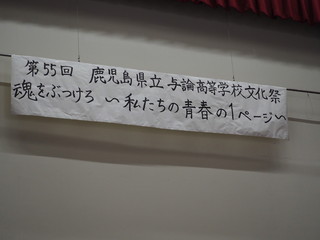 第55回 鹿児島県立与論高等学校文化祭
魂をぶつけろ 〜私たちの青春の1ページ〜